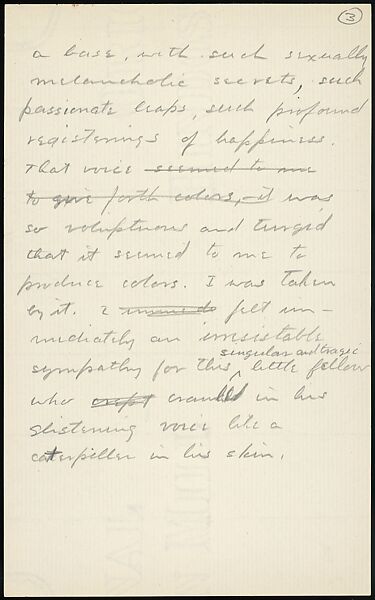 3
a base, with such sexually
melancholic secrets, such
passionate leaps, such profound
registerings of happiness.
That voice seemed to me
to give forth colors, it was
so voluptuous and turgid
that it seemed to me to
produce colors. I was taken
by it. I immed felt im-
mediately an irresistable
singular and tragic
sympathy for this little fellow
who crept crawled in his
glistening voice like a
caterpiller in his skin.